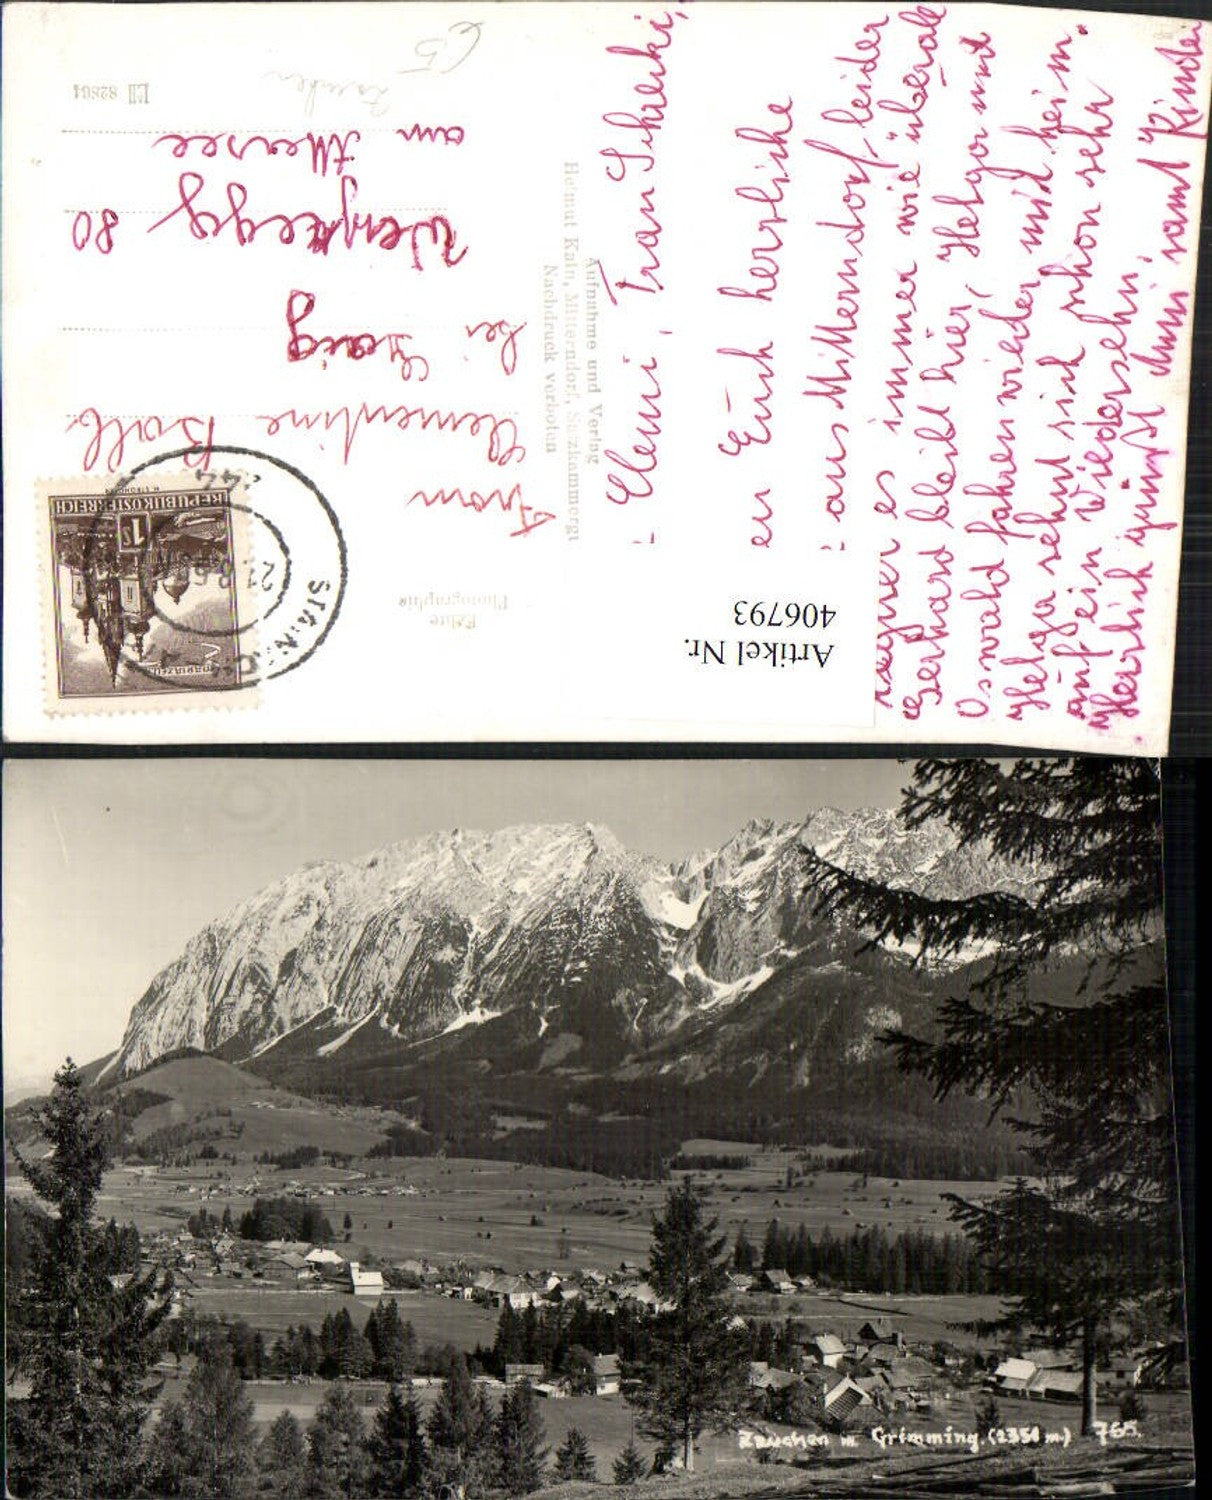 Clemi, Frau Schreki,
en Euch herzliche
aus Mitterndorf leider
regnet es immer wie überall
Gerhard bleibt hier, Helga und
Oswald fahren wieder mit heim.
Helga sehnt sich schon sehr
auf ein Wiedersehn.
Herzlich grüsst Mimi samt Kinder
Artikel Nr.
406793
Aufnahme und Verlag
Helmut Kain, Mitterndorf, Salzkammergt
Nachdruck verboten
Echte
Photographie
REPUBLIK ÖSTERREICH
1 S
MARIAZELL
STAINACH
Frau
Clementine Ball
bei Gaig
Weyregg 80
am Attersee
82864
Zauchen m Grimming. (2351 m.) 765.